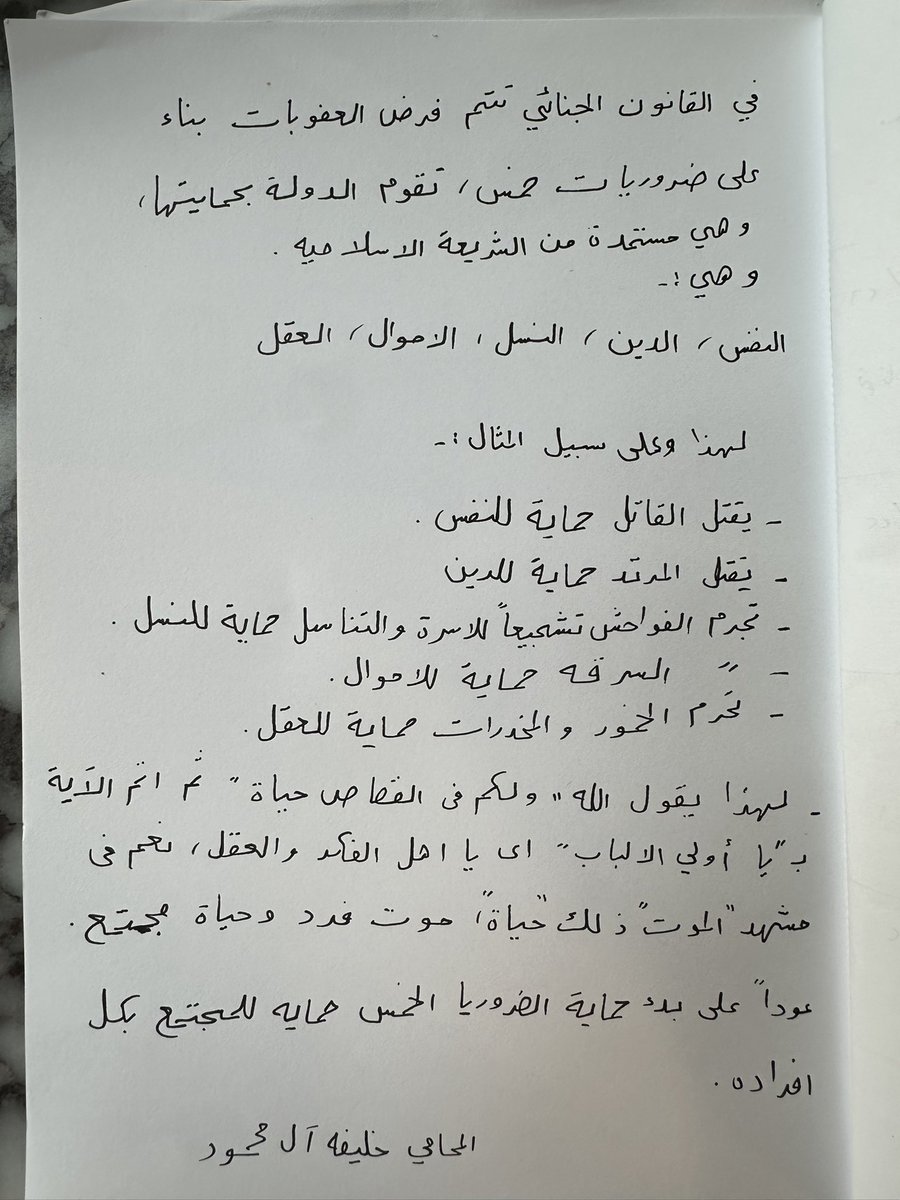 في القانون الجنائي تتم فرض العقوبات بناء
على ضروريات خمس، تقوم الدولة بحمايتها،
وهي مستمدة من الشريعة الاسلاميه .
وهي :-
النفس، الدين، النسل، الاموال، العقل
لهذا وعلى سبيل المثال :-
- يقتل القاتل حماية للنفس .
- يقتل المرتد حماية للدين
- تجرم الفواحش تشجيعاً للاسرة والتناسل حماية للنسل .
- " السرقه حماية للاموال .
- تحرم الخمور والمخدرات حماية للعقل .
- لهذا يقول الله " ولكم فى القصاص حياة " ثم اتم الآية
بـ "يا أولي الالباب" اى يا اهل الفكر والعقل، نعم فى
مشهد "الموت" ذلك "حياة"، موت فرد وحياة مجتمع .
عوداً على بدء حماية الضروريا الخمس حمايه للمجتمع بكل
افراده .
المحامي خليفه آل محمود